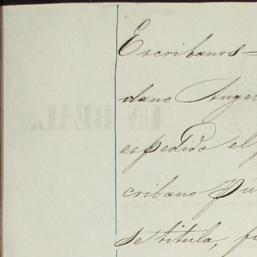 Escribanos
dano Augu
espedido el
cribano Pu
se titula, fi